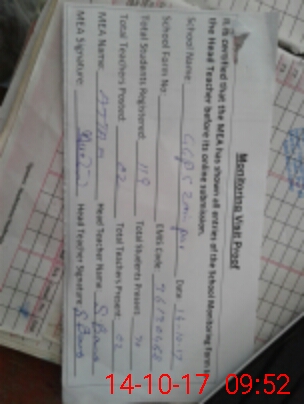 Monitoring Visit Proof
It is certified that the MEA has shown all entries of the School Monitoring Form to
the Head Teacher before its online submission.
School Name: GGPS Date 14-10-17
School Form No: EMIS Code:
Total Students Registered: 119 Total Students Present:
Total Teachers Posted: 02 Total Teachers Present: 02
MEA Name: Head Teacher Name: S. Bano
MEA Signature: Head Teacher Signature: S. Bano
14-10-17 09:52